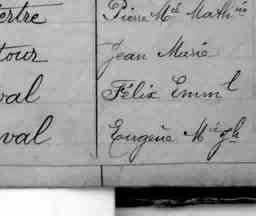 ertre Pierre Mie Mathin
tour Jean Marie
val Félix Emml
val Eugène Mie Jh